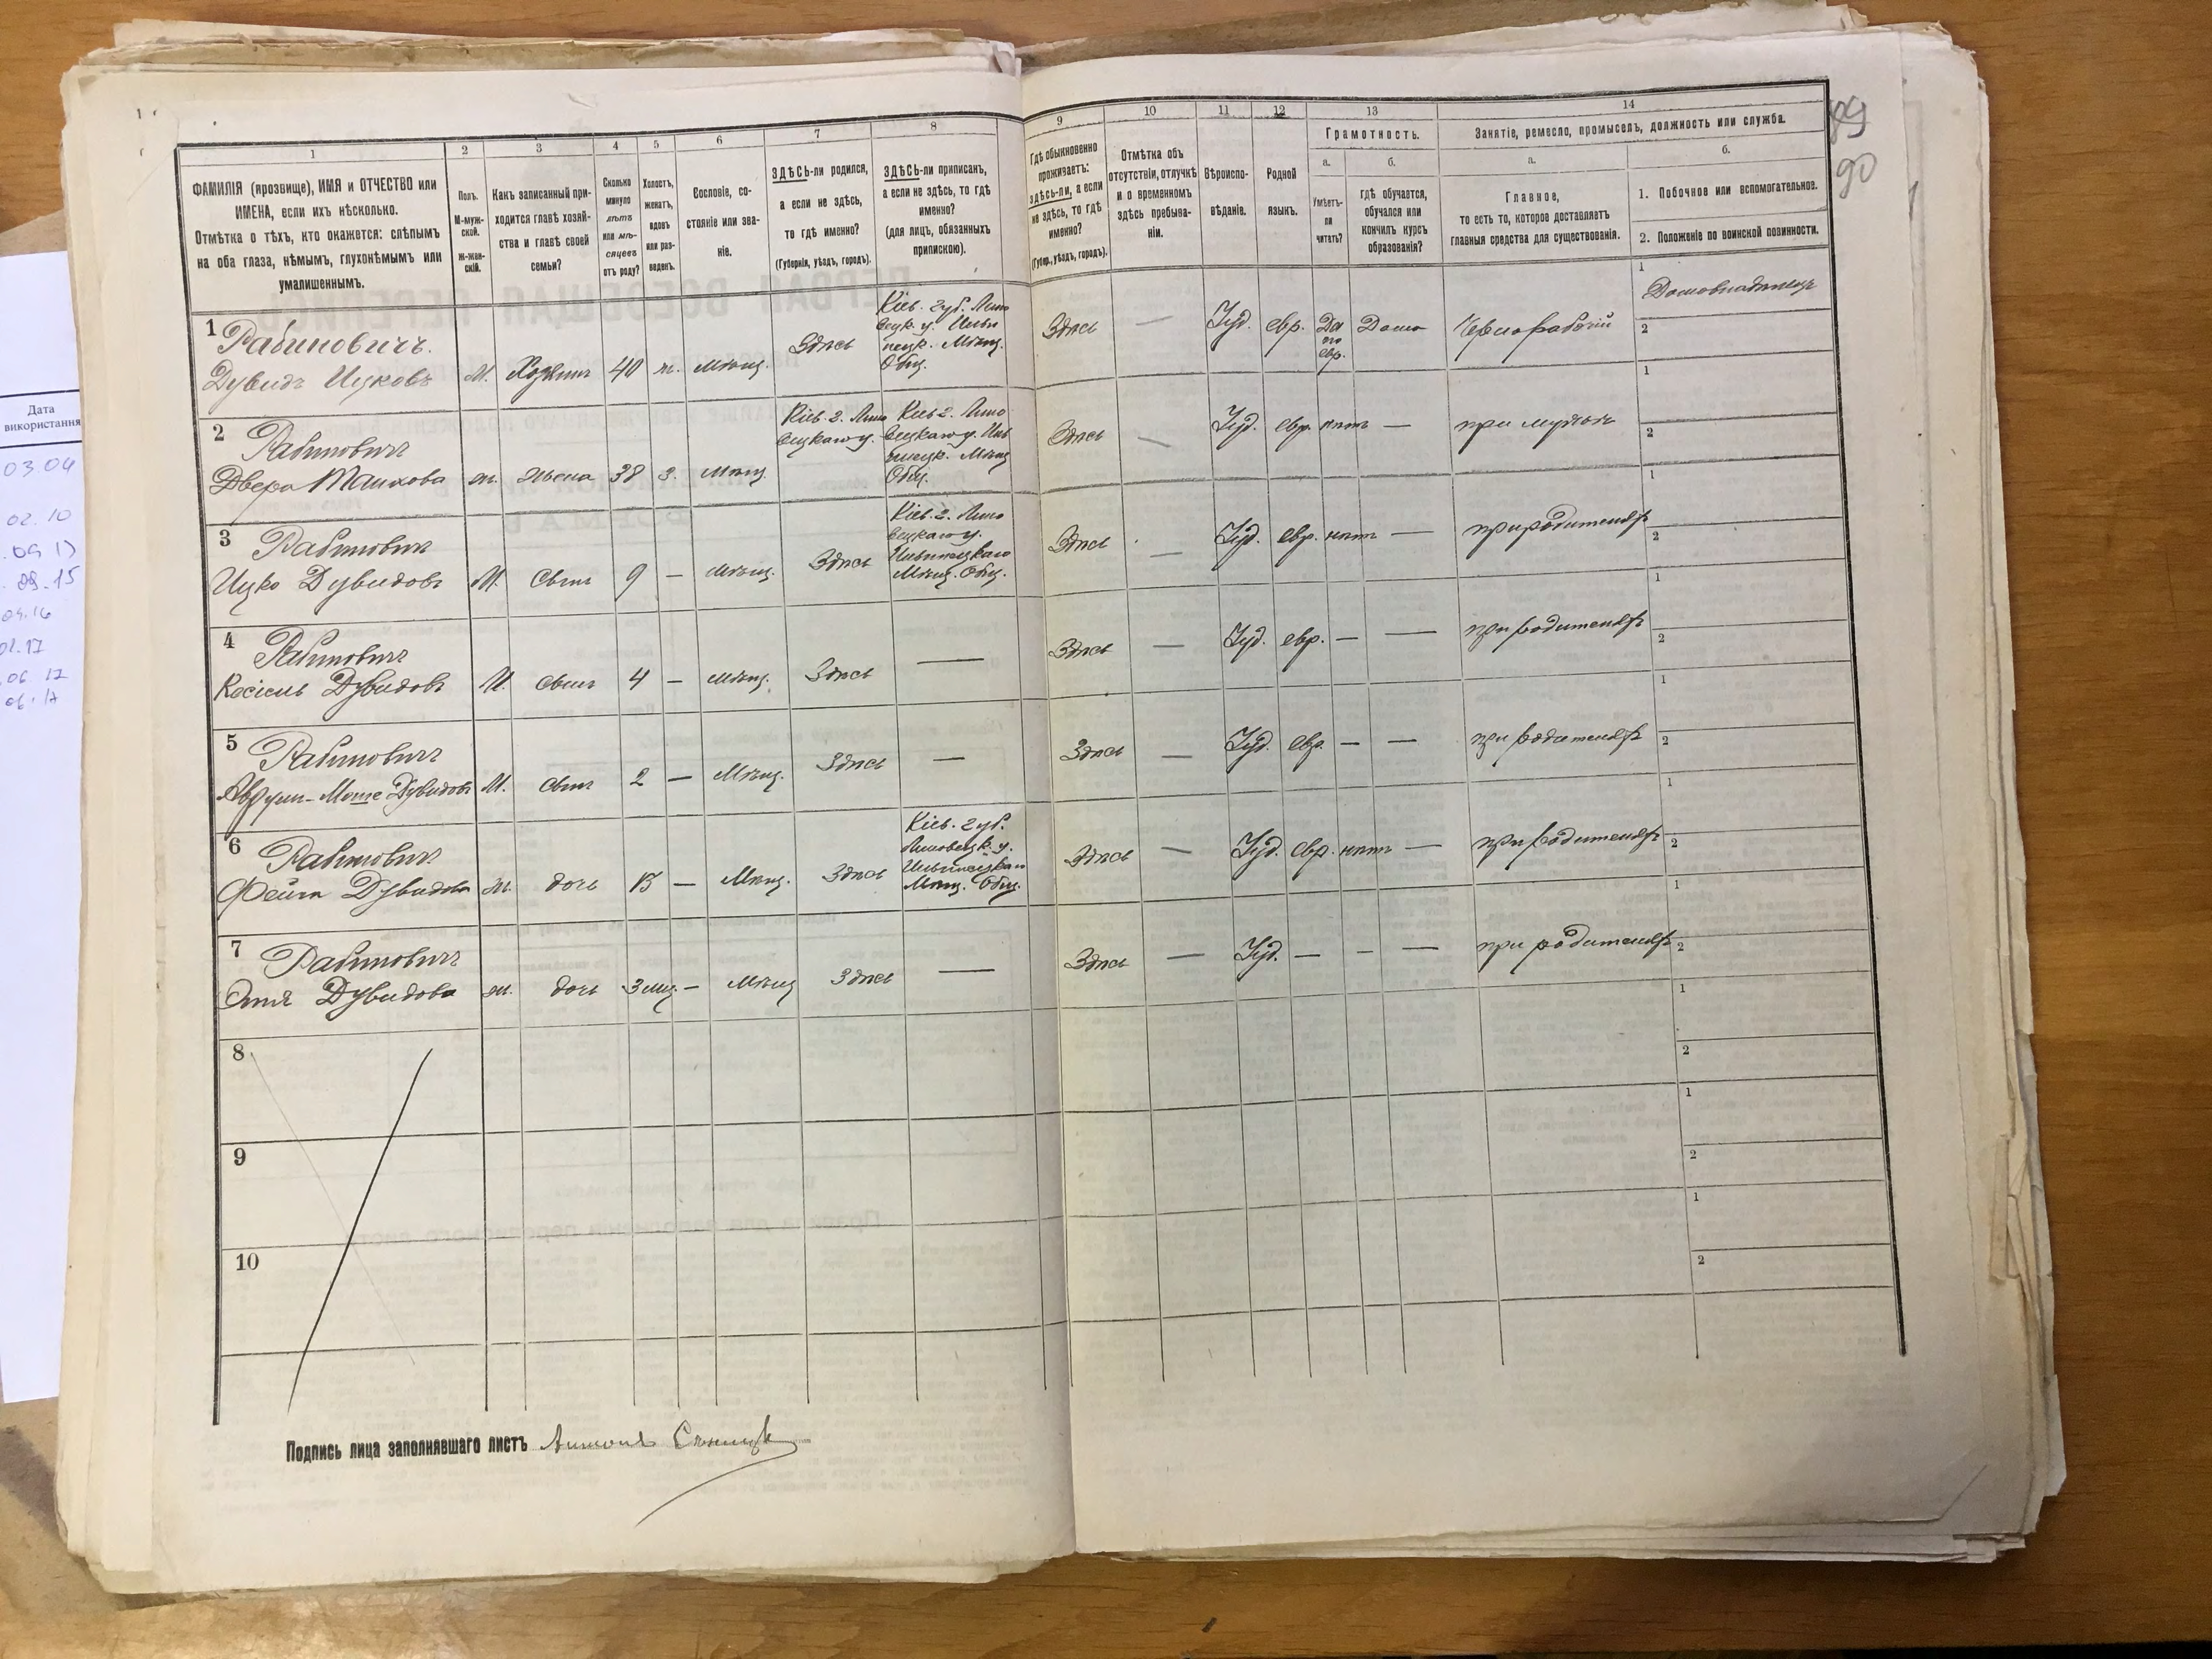 1 2 3 4 5 6 7 8
ФАМИЛІЯ (прозвище), ИМЯ и ОТЧЕСТВО или
ИМЕНА, если ихъ нѣсколько.
Отмѣтка о тѣхъ, кто окажется: слѣпымъ
на оба глаза, нѣмымъ, глухонѣмымъ или
умалишеннымъ.
Полъ.
М-муж-
ской.
Ж-жен-
скій.
Какъ записанный при-
ходится главѣ хозяй-
ства и главѣ своей
семьи?
Сколько
минуло
лѣтъ
или мѣ-
сяцевъ
отъ роду?
Холостъ,
женатъ,
вдовъ
или раз-
веденъ.
Сословіе, со-
стояніе или зва-
ніе.
ЗДѢСЬ-ли родился,
а если не здѣсь,
то гдѣ именно?
(Губернія, уѣздъ, городъ).
ЗДѢСЬ-ли приписанъ,
а если не здѣсь, то гдѣ
именно?
(для лицъ, обязанныхъ
припискою).
9 10 11 12 13 14
Гдѣ обыкновенно
проживаетъ:
здѣсь-ли, а если
не здѣсь, то гдѣ
именно?
(Губер., уѣздъ, городъ).
Отмѣтка объ
отсутствіи, отлучкѣ
и о временномъ
здѣсь пребыва-
ніи.
Вѣроиспо-
вѣданіе.
Родной
языкъ.
Грамотность.
а. б.
Умѣетъ-
ли
читать?
гдѣ обучается,
обучался или
кончилъ курсъ
образованія?
Занятіе, ремесло, промыселъ, должность или служба.
а. б.
Главное,
то есть то, которое доставляетъ
главныя средства для существованія.
1. Побочное или вспомогательное.
2. Положеніе по воинской повинности.
89
90
1 Рабиновичъ.
Дувидъ Ицковъ М. Хозяинъ 40 ж. мѣщ. Здѣсь
Кіев. губ. Липо
вецк. у. Ильи
нецк. Мѣщ.
Общ.
Здѣсь — Іуд. евр. Да
по
евр.
Дома Чернорабочій
1 Домовладѣлецъ
2
2 Рабиновичъ
Двера Танхова ж. жена 38 з. мѣщ.
Кіев. г. Липо
вецкаго у.
Кіев г. Липо
вецкаго у. Иль
инецк. Мѣщ
Общ.
Здѣсь — Іуд. евр. нѣтъ — при мужѣ
1
2
3 Рабиновичъ
Ицко Дувидовъ М. сынъ 9 — мѣщ. Здѣсь
Кіев. г. Липо
вецкаго у.
Ильинецкаго
Мѣщ. Общ.
Здѣсь — Іуд. евр. нѣтъ — при родителяхъ
1
2
4 Рабиновичъ
Косіель Дувидовъ М. сынъ 4 — мѣщ. Здѣсь —
Здѣсь — Іуд. евр. — — при родителяхъ
1
2
5 Рабиновичъ
Аврум-Моше Дувидовъ М. сынъ 2 — Мѣщ. Здѣсь —
Здѣсь — Іуд. евр. — — при родителяхъ
1
2
6 Рабиновичъ
Фейга Дувидова ж. дочь — Мѣщ. Здѣсь
Кіев. губ.
Липовецк. у.
Ильинецкаго
Мѣщ. Общ.
Здѣсь — Іуд. евр. нѣтъ — при родителяхъ
1
2
7 Рабиновичъ
Дувидова ж. дочь 3 мѣс. — Мѣщ Здѣсь —
Здѣсь — Іуд. — — — при родителяхъ
1
2
8
1
2
9
1
2
10
1
2
Подпись лица заполнявшаго листъ Антонъ
Дата
використання
03.04
02.10
09.15
04.16
06.17